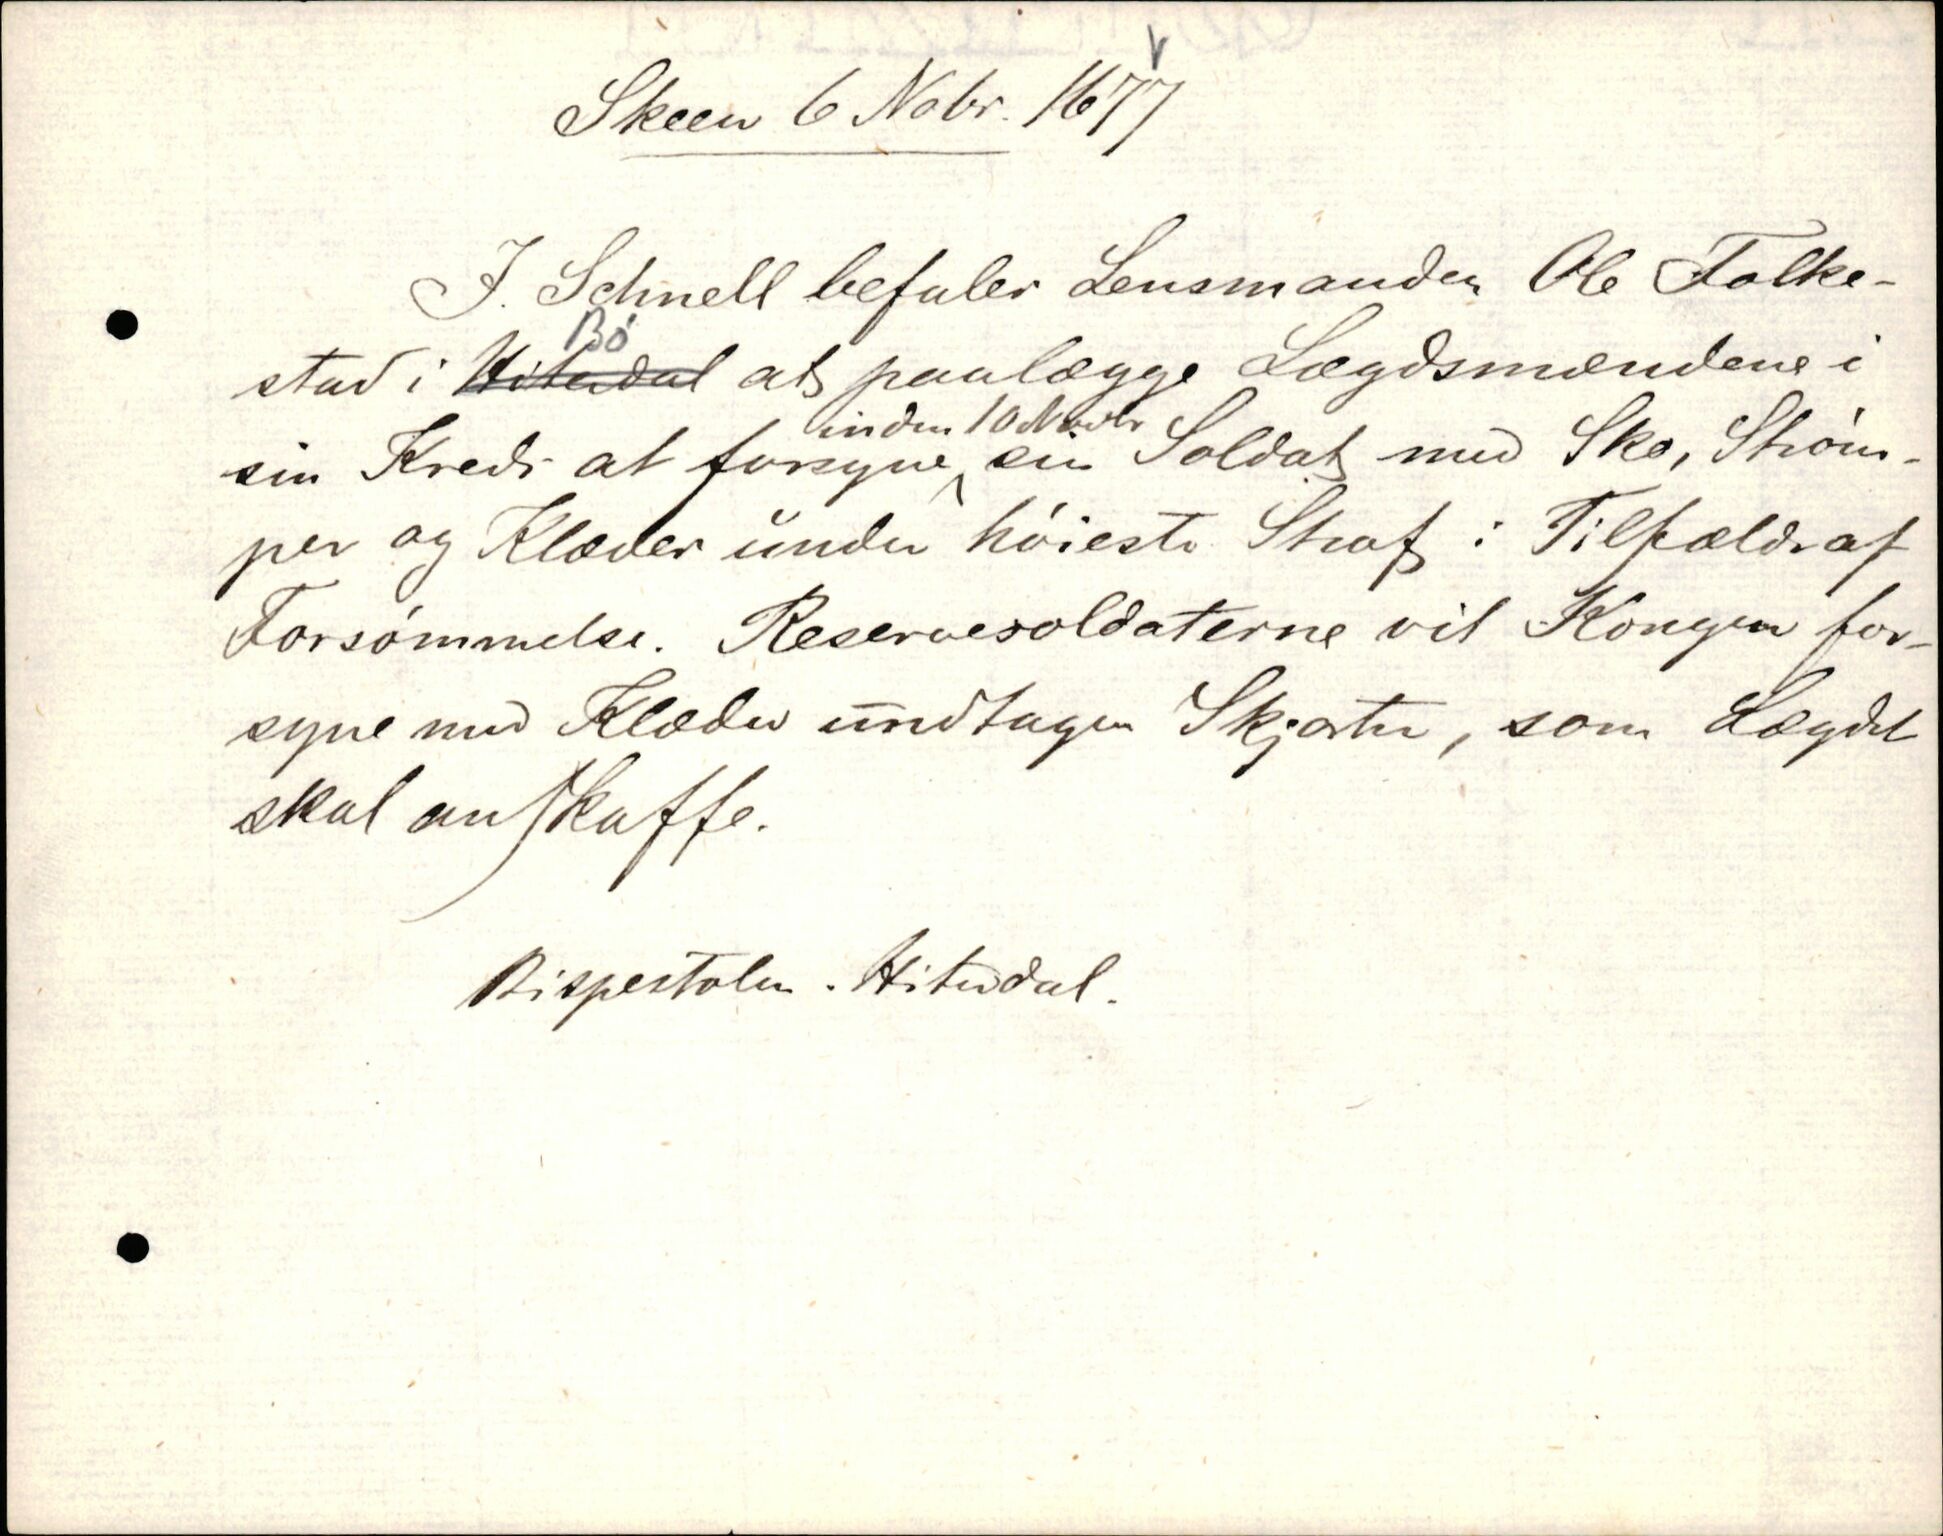 Skeen 6 Nobr. 1677
J. Schnell befaler Lensmanden Ole Folke-
stad i Bö Hiterdal at paalægge Lægdsmændene i
sin Kreds at forsyne inden 10 Novbr sin Soldat med Sko, Ström-
per og Klæder under höieste Straf i Tilfælde af
Forsömmelse. Reservesoldaterne vil Kongen for-
syne med Klæder undtagen Skjorter, som Lægdet
skal anskaffe.
Bispestolen. Hiterdal.